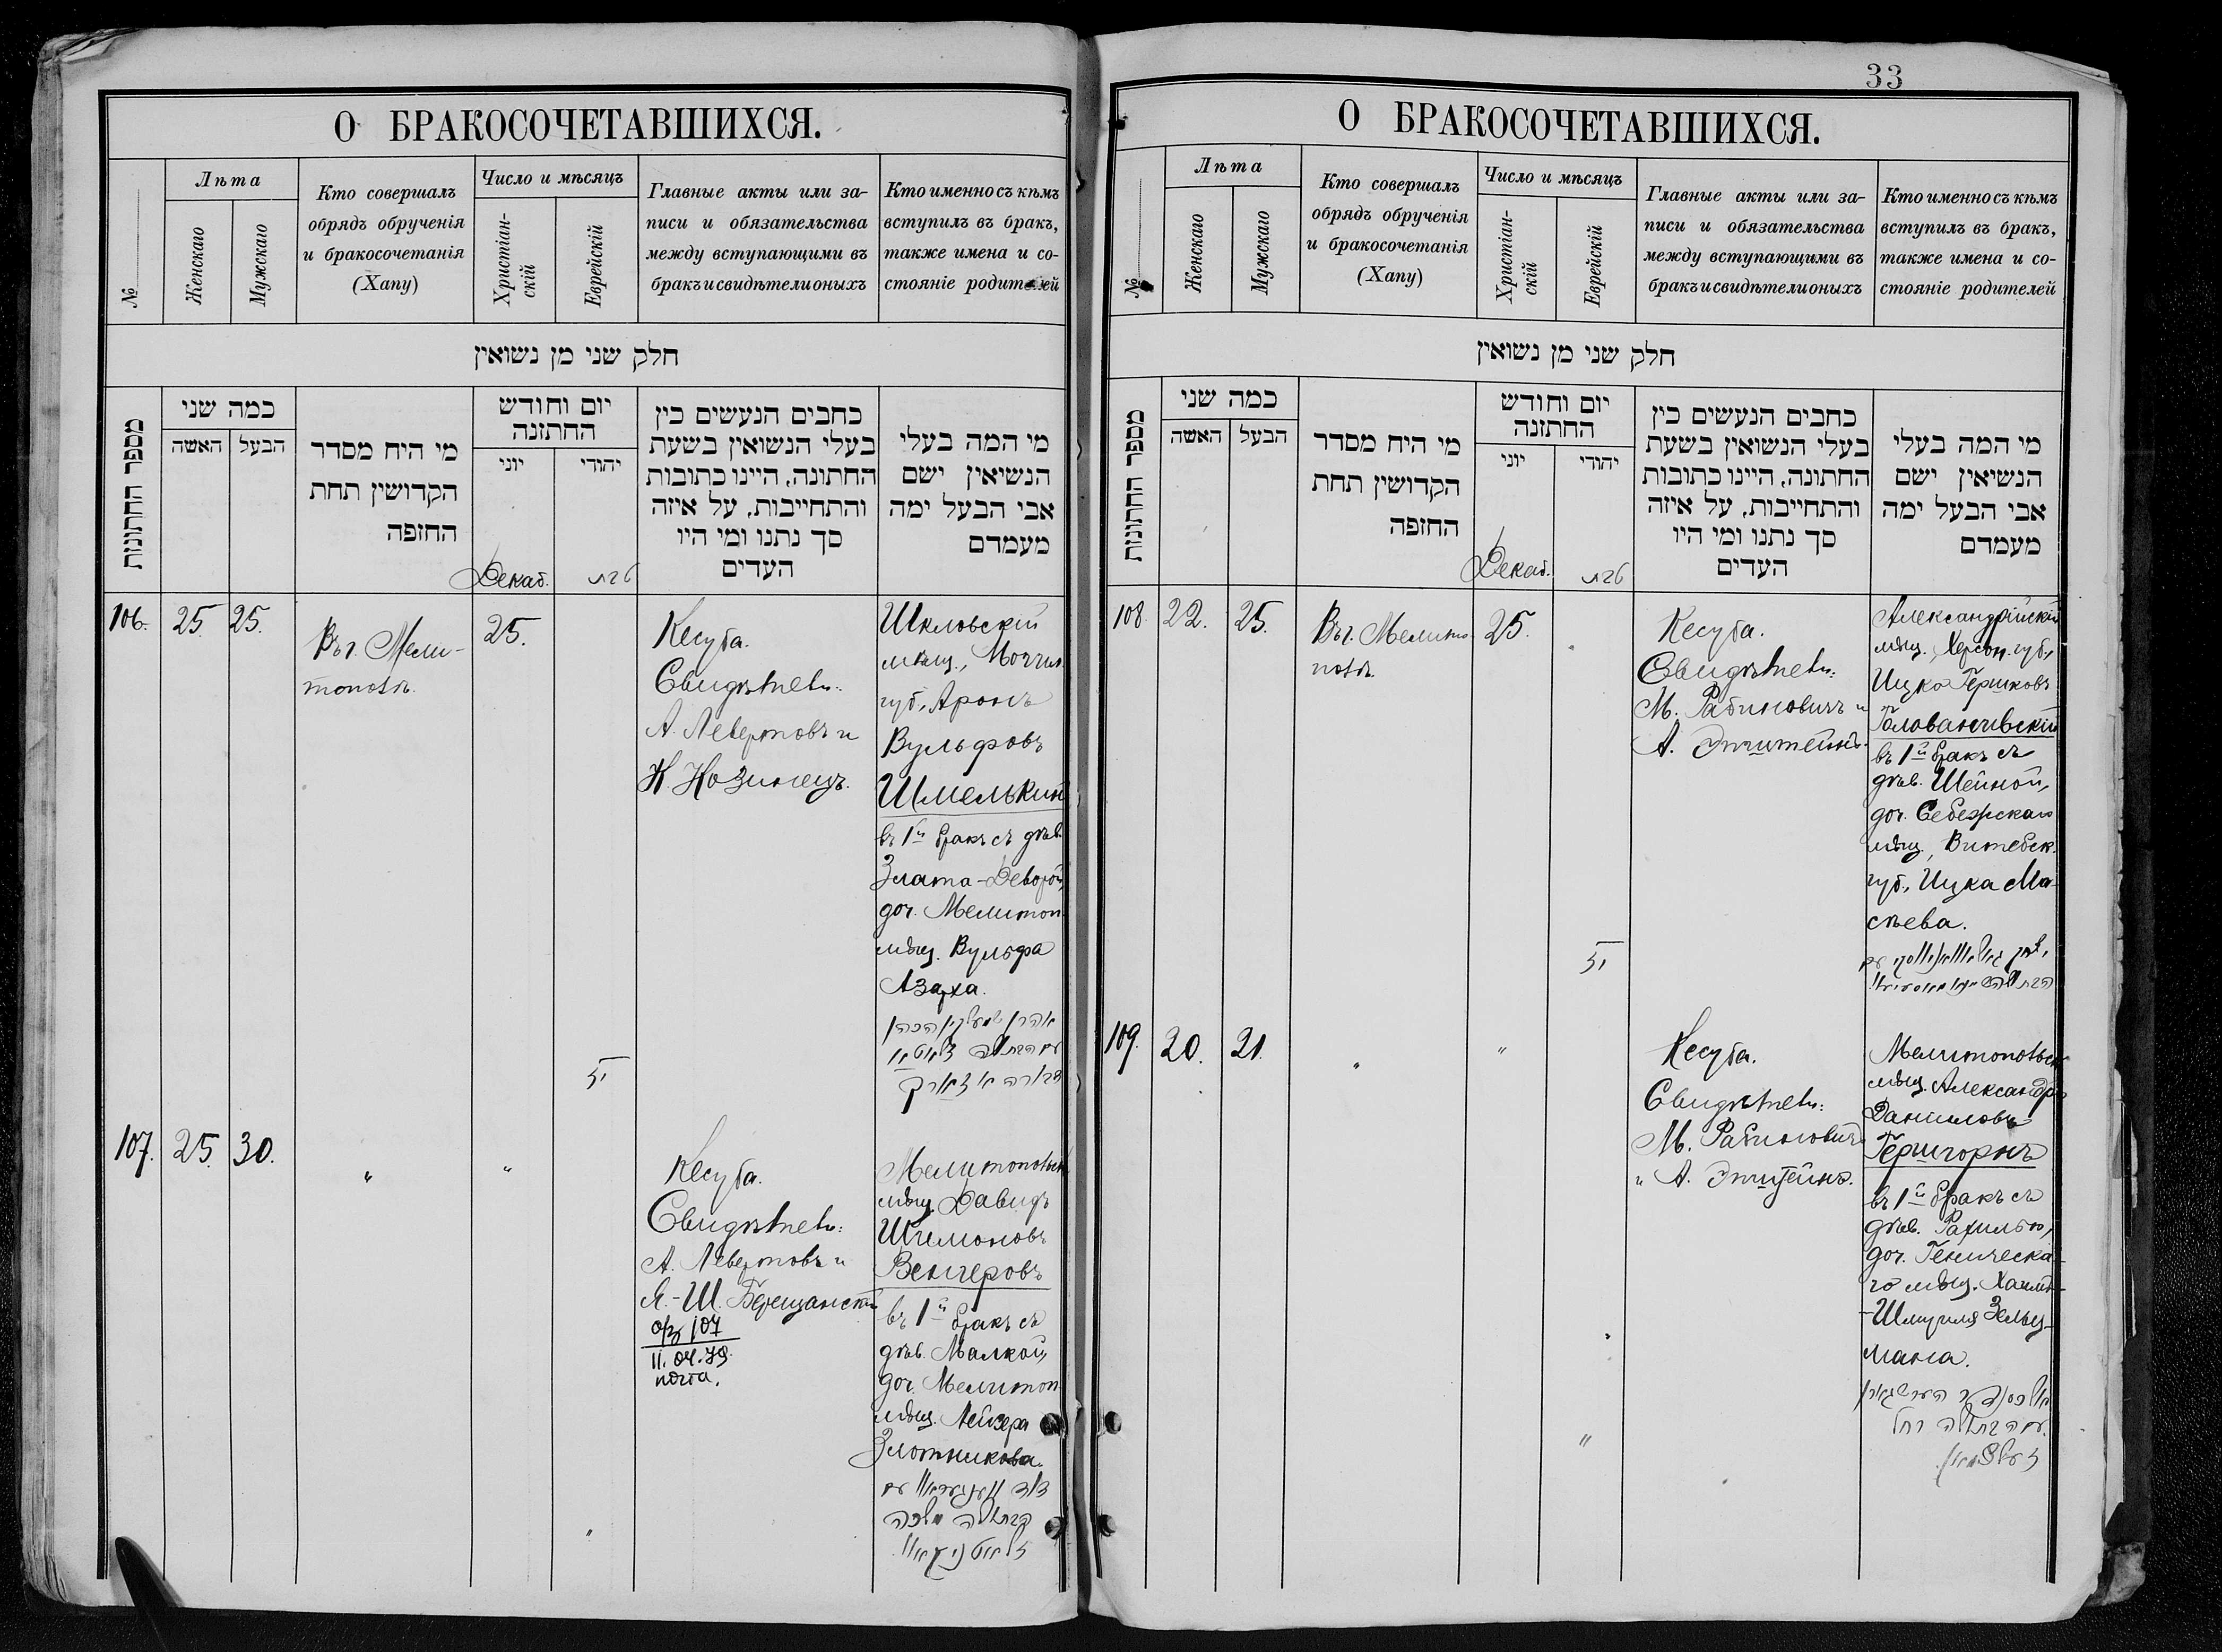 О БРАКОСОЧЕТАВШИХСЯ.
№
Лѣта
Женскаго
Мужскаго
Кто совершалъ
обрядъ обрученія
и бракосочетанія
(Хапу)
Число и мѣсяцъ
Христіан-
скій
Еврейскій
Главные акты или за-
писи и обязательства
между вступающими въ
бракъ и свидѣтели оныхъ
Кто именно съ кѣмъ
вступилъ въ бракъ,
также имена и со-
стояніе родителей
חלק שני מן נשואין
מספר החתונות
כמה שני
האשה
הבעל
מי היח מסדר
הקדושין תחת
החזפה
יום וחודש
החתזנה
יוני
יהודי
Декаб.
טבת
כחבים הנעשים כין
בעלי הנשואין בשעת
החתונה, היינו כתובות
והתחייבות, על איזה
סך נתנו ומי היו
העדים
מי המה בעלי
הנשיאין ישם
אבי הבעל ימה
מעמדם
106.
25.
25.
Въ г. Мели-
тополѣ.
25.
יז
Кесуба.
Свидѣтели:
А. Левертовъ и
К. Козинецъ.
Шкловскій
мѣщ., Могил.
губ., Аронъ
Вульфовъ
Шмелькин
въ 1й бракъ съ дѣв.
Злата-Деворой,
доч. Мелитоп.
мѣщ. Вульфа
Азарха.
אהרן שמעלקין הכהן
עם הבתולה זלאטא
דבורה אזארך
107.
25.
30.
"
"
"
Кесуба.
Свидѣтели:
А. Левертовъ и
Я.-Ш. Берещанскій
107
11.04.79.
почта.
Мелитопольск.
мѣщ. Давидъ
Шлемоновъ
Венгеровъ
въ 1й бракъ съ
дѣв. Малкой,
доч. Мелитоп.
мѣщ. Лейзера
Злотникова.
דוד ווענגעראוו עם
הבתולה מלכה
זלאטניקאוו.
33
О БРАКОСОЧЕТАВШИХСЯ.
№
Лѣта
Женскаго
Мужскаго
Кто совершалъ
обрядъ обрученія
и бракосочетанія
(Хапу)
Число и мѣсяцъ
Христіан-
скій
Еврейскій
Главные акты или за-
писи и обязательства
между вступающими въ
бракъ и свидѣтели оныхъ
Кто именно съ кѣмъ
вступилъ въ бракъ,
также имена и со-
стояніе родителей
חלק שני מן נשואין
מספר החתונות
כמה שני
האשה
הבעל
מי היח מסדר
הקדושין תחת
החזפה
יום וחודש
החתזנה
יוני
יהודי
Декаб.
טבת
כחבים הנעשים כין
בעלי הנשואין בשעת
החתונה, היינו כתובות
והתחייבות, על איזה
סך נתנו ומי היו
העדים
מי המה בעלי
הנשיאין ישם
אבי הבעל ימה
מעמדם
108.
22.
25.
Въ г. Мелито-
полѣ.
25.
יז
Кесуба.
Свидѣтели:
М. Рабиновичъ и
А. Эпштейнъ.
Александрійскій
мѣщ., Херсон. губ.,
Ицко Гершковъ
Голованивскій
въ 1й бракъ съ
дѣв. Шейной,
доч. Себежскаго
мѣщ., Витебск.
губ., Ицка Мо-
сѣева.
109.
20.
21.
"
"
"
Кесуба.
Свидѣтели:
М. Рабиновичъ
и А. Эпштейнъ.
Мелитопольск.
мѣщ. Александръ
Даниловъ
Гершгорнъ
въ 1й бракъ съ
дѣв. Рахилью,
доч. Геническа-
го мѣщ. Хаима-
-Шмуиля Зельц-
мана.
אלכסנדר הערשגארן
עם הבתולה רחל
זעלצמאן.